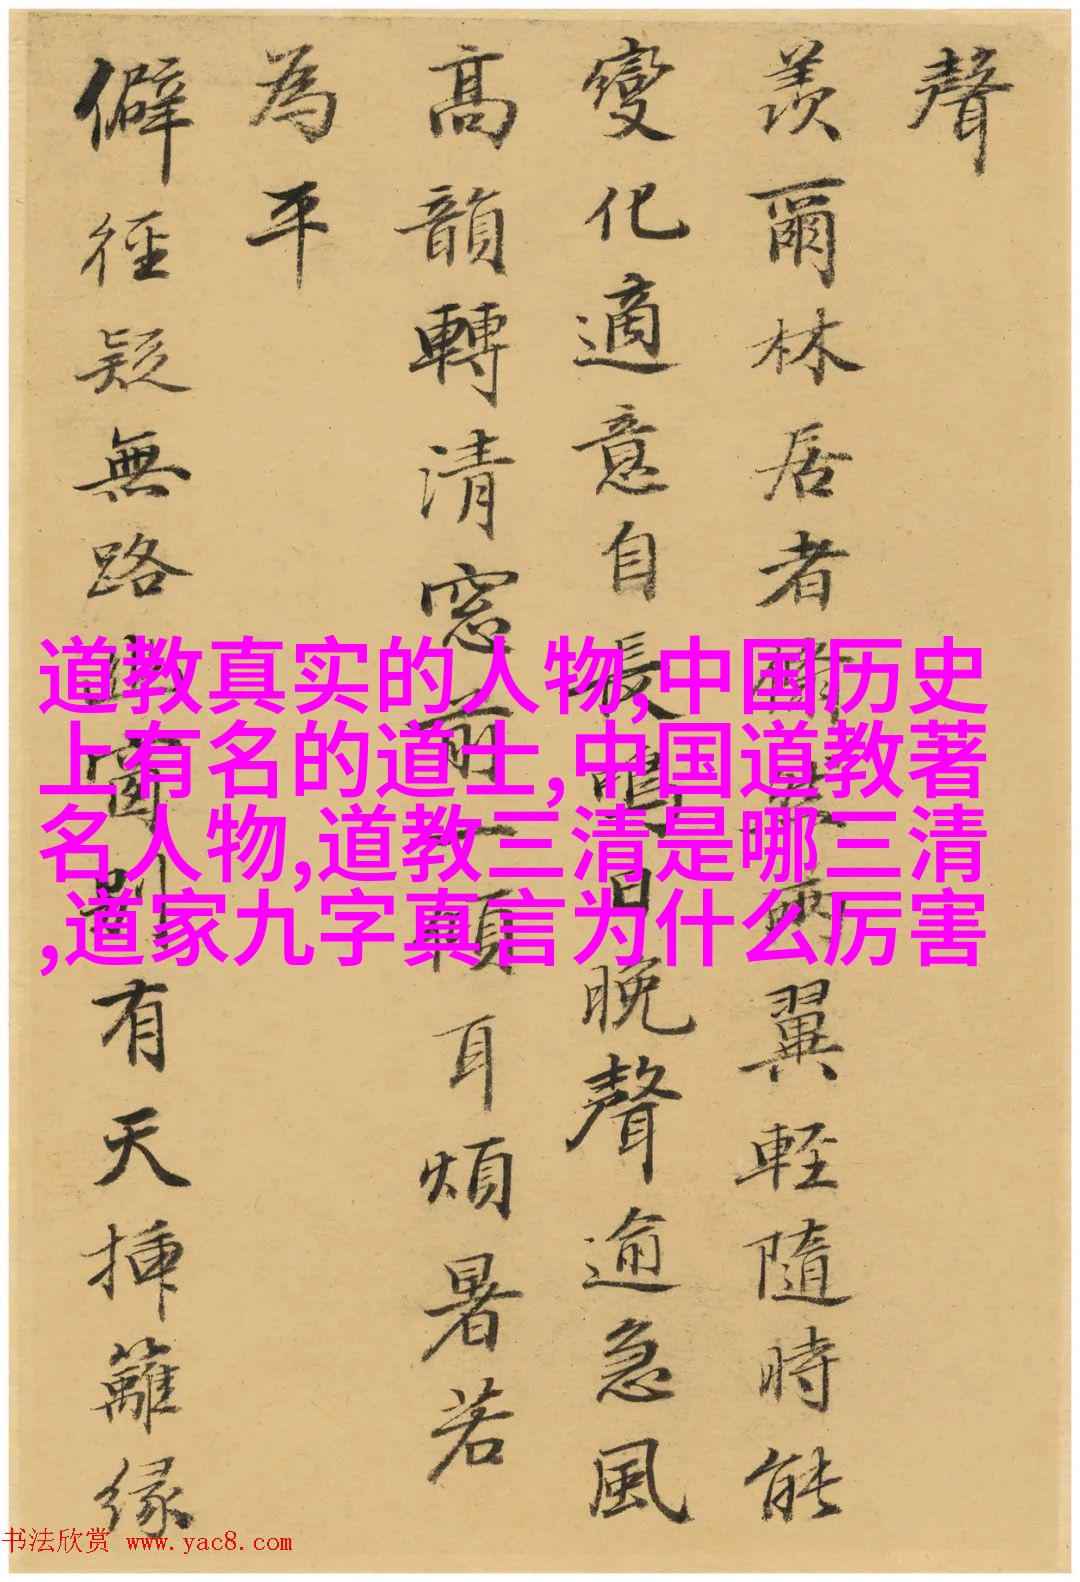 聲
羨爾林居者兩翼輕隨時能
變化適意自長鳴日晚聲逾急風
高韻轉清窓前一傾耳煩暑若
為平
僻徑疑無路窗別有天揷籬緣
道教真实的人物,中国历史
上有名的道士,中国道教著
名人物,道教三清是哪三清
,道家九字真言为什么厉害
书法欣赏 www.yac8.com